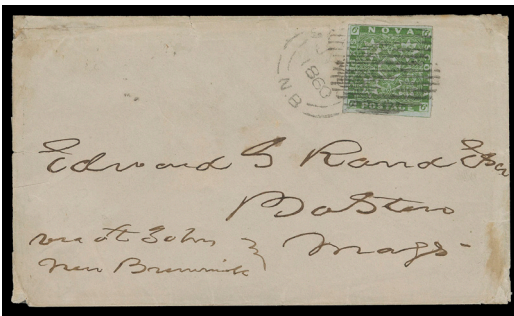 NOVA
POSTAGE
1860
N.B
Edward G Rand Esqr
Boston
Mass
via St John
New Brunswick